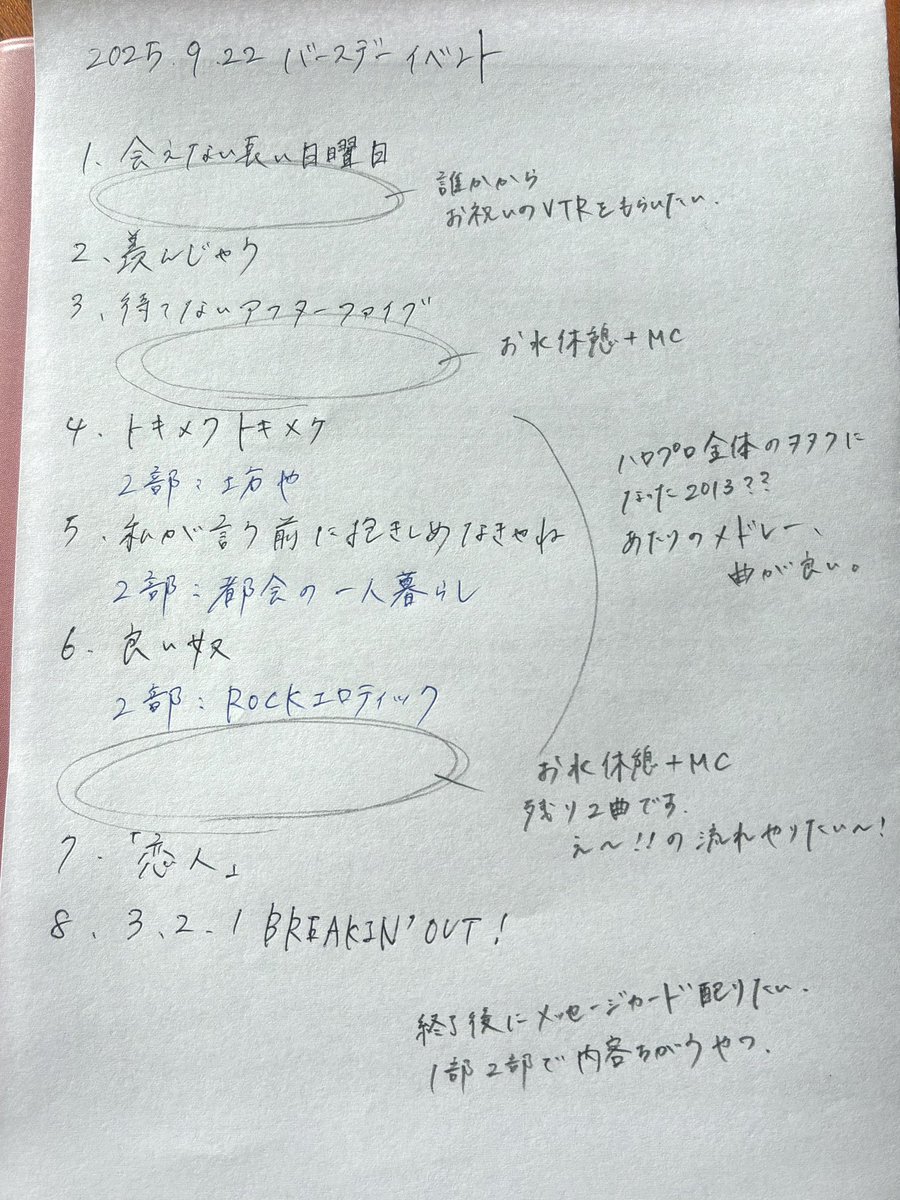 2025.9.22 バースデーイベント
1、会えない長い日曜日
誰かから
お祝いのVTRをもらいたい.
2、羨んじゃう
3、待てないアフターファイブ
お水休憩+MC
4. トキメクトキメケ
2部:土方や
5. 私が言う前に抱きしめなきゃね
2部:都会の一人暮らし
6. 良い奴
2部:ROCKエロティック
ハロプロ全体のヲタクに
なった2013??
あたりのメドレー、
曲が良い。
お水休憩+MC
残り2曲です.
え〜!!の流れやりたい〜!
7.「恋人」
8、3.2.1 BREAKIN'OUT!
終了後にメッセージカード配りたい.
1部2部で内容ちがうやつ.